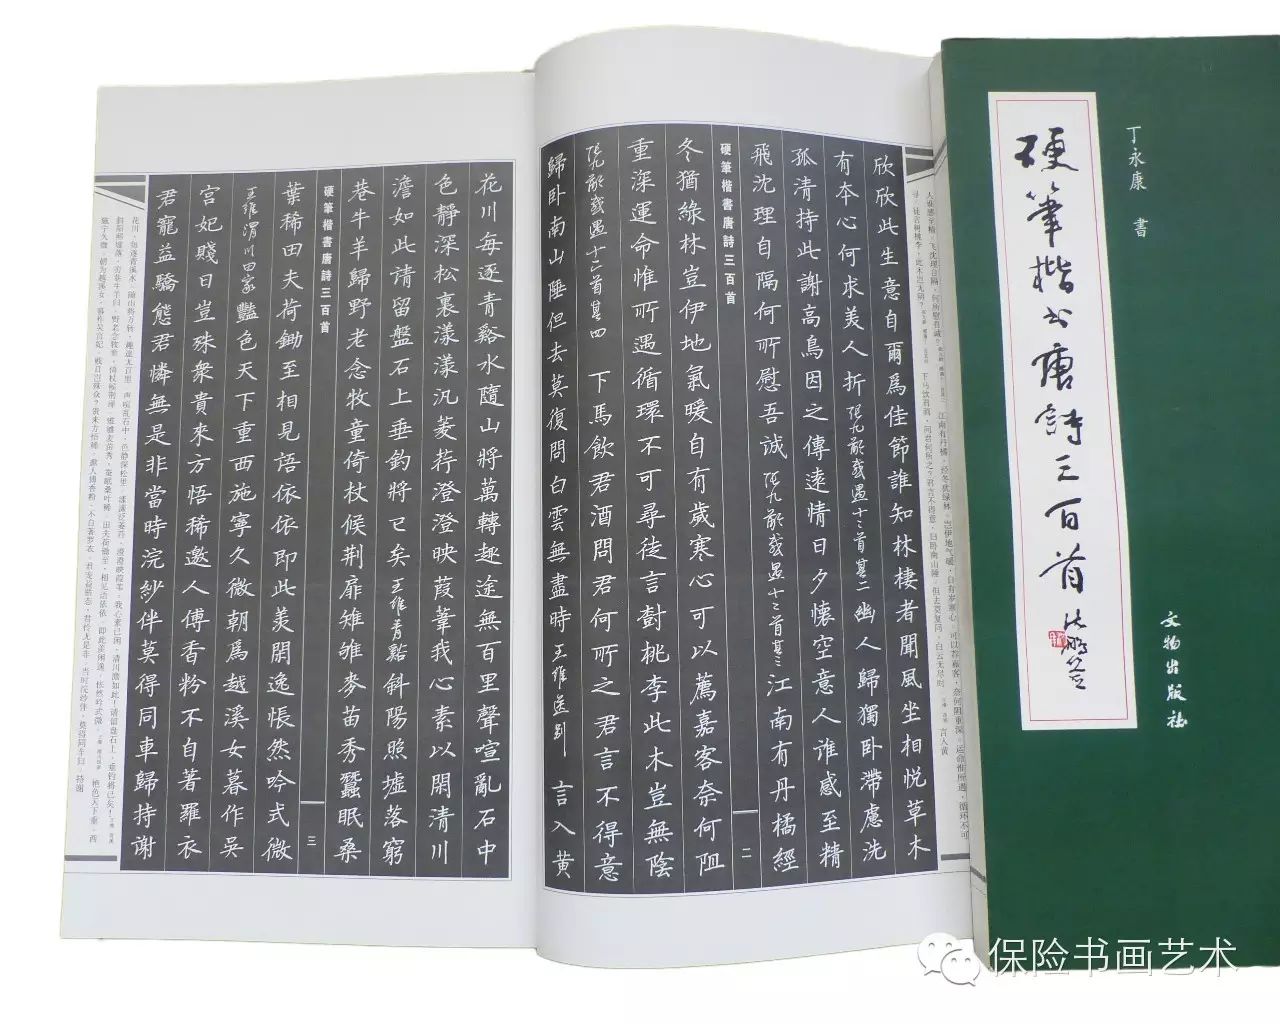 丁永康 書
硬筆楷书唐詩三百首 沈鵬簽
文物出版社
欣欣此生意自爾為佳節誰知林棲者聞風坐相悅草木
有本心何求美人折 張九齡感遇十二首其二 幽人歸獨卧滯慮洗
孤清持此謝高鳥因之傳遠情日夕懷空意人誰感至精
飛沈理自隔何所慰吾誠 張九齡感遇十二首其三 江南有丹橘經
硬筆楷書唐詩三百首 二
冬猶綠林豈伊地氣暖自有歲寒心可以薦嘉客奈何阻
重深運命惟所遇循環不可尋徒言對桃李此木豈無陰
張九齡感遇十二首其四 下馬飲君酒問君何所之君言不得意
歸卧南山陲但去莫復問白雲無盡時 王維送别 言入黄
花川每逐青谿水隨山將萬轉趣途無百里聲喧亂石中
色靜深松裏漾漾汎菱荇澄澄映葭葦我心素以閑清川
澹如此請留盤石上垂釣將已矣 王維青谿 斜陽照墟落窮
巷牛羊歸野老念牧童倚杖候荆扉雉雊麥苗秀蠶眠桑
硬筆楷書唐詩三百首 三
葉稀田夫荷鋤至相見語依依即此羨閑逸悵然吟式微
王維渭川田家 豔色天下重西施寧久微朝為越溪女暮作吳
宮妃賤日豈殊衆貴來方悟稀邀人傅香粉不自著羅衣
君寵益驕態君憐無是非當時浣紗伴莫得同車歸持謝
保险书画艺术